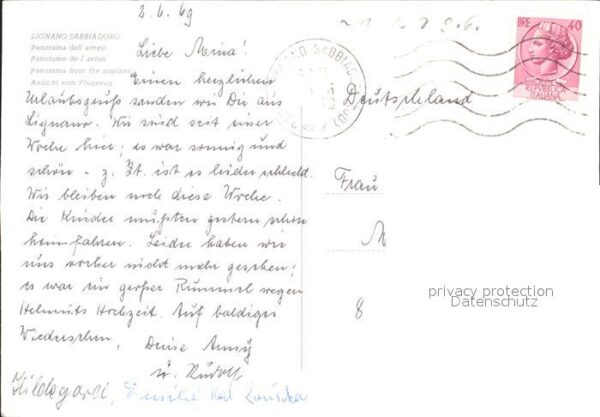 2. 6. 69
LIGNANO SABBIADORO
Panorama dall'aereo
Panorama de l'avion
Panorama from the airplane
Ansicht vom Flugzeug
Liebe Meina!
Einen herzlichen
Urlaubsgruß senden wir Dir aus
Lignano. Wir sind seit einer
Woche hier; es war sonnig und
schön - z. Zt. ist es leider schlecht.
Wir bleiben noch diese Woche.
Die Kinder mußten gestern schon
heimfahren. Leider haben wir
uns vorher nicht mehr gesehen;
es war ein großer Rummel wegen
Helmuts Hochzeit. Auf baldiges
Wiedersehen,
Deine
u. Rudolf
Hildegard, Familie Karl
LIRE 40
REPUBBLICA
ITALIANA
Deutschland
Frau
M
8
privacy protection
Datenschutz